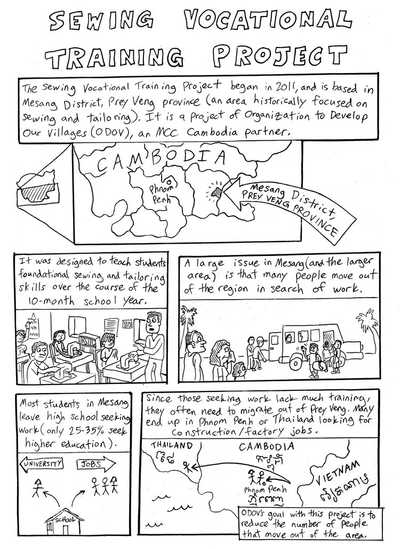 SEWING VOCATIONAL
TRAINING PROJECT
The Sewing Vocational Training Project began in 2011, and is based in
Mesang District, Prey Veng province (an area historically focused on
sewing and tailoring). It is a project of Organization to Develop
Our Villages (ODOV), an MCC Cambodia partner.
CAMBODIA
Phnom
Penh
Mesang District,
PREY VENG PROVINCE
It was designed to teach students
foundational sewing and tailoring
skills over the course of the
10-month school year.
A large issue in Mesang (and the larger
area) is that many people move out
of the region in search of work.
Most students in Mesang
leave high school seeking
work (only 25-35% seek
higher education).
UNIVERSITY
JOBS
SCHOOL
Since those seeking work lack much training,
they often need to migrate out of Prey Veng. Many
end up in Phnom Penh or Thailand looking for
construction/factory jobs.
THAILAND
CAMBODIA
Phnom Penh
VIETNAM
ODOV's goal with this project is to
reduce the number of people
that move out of the area.